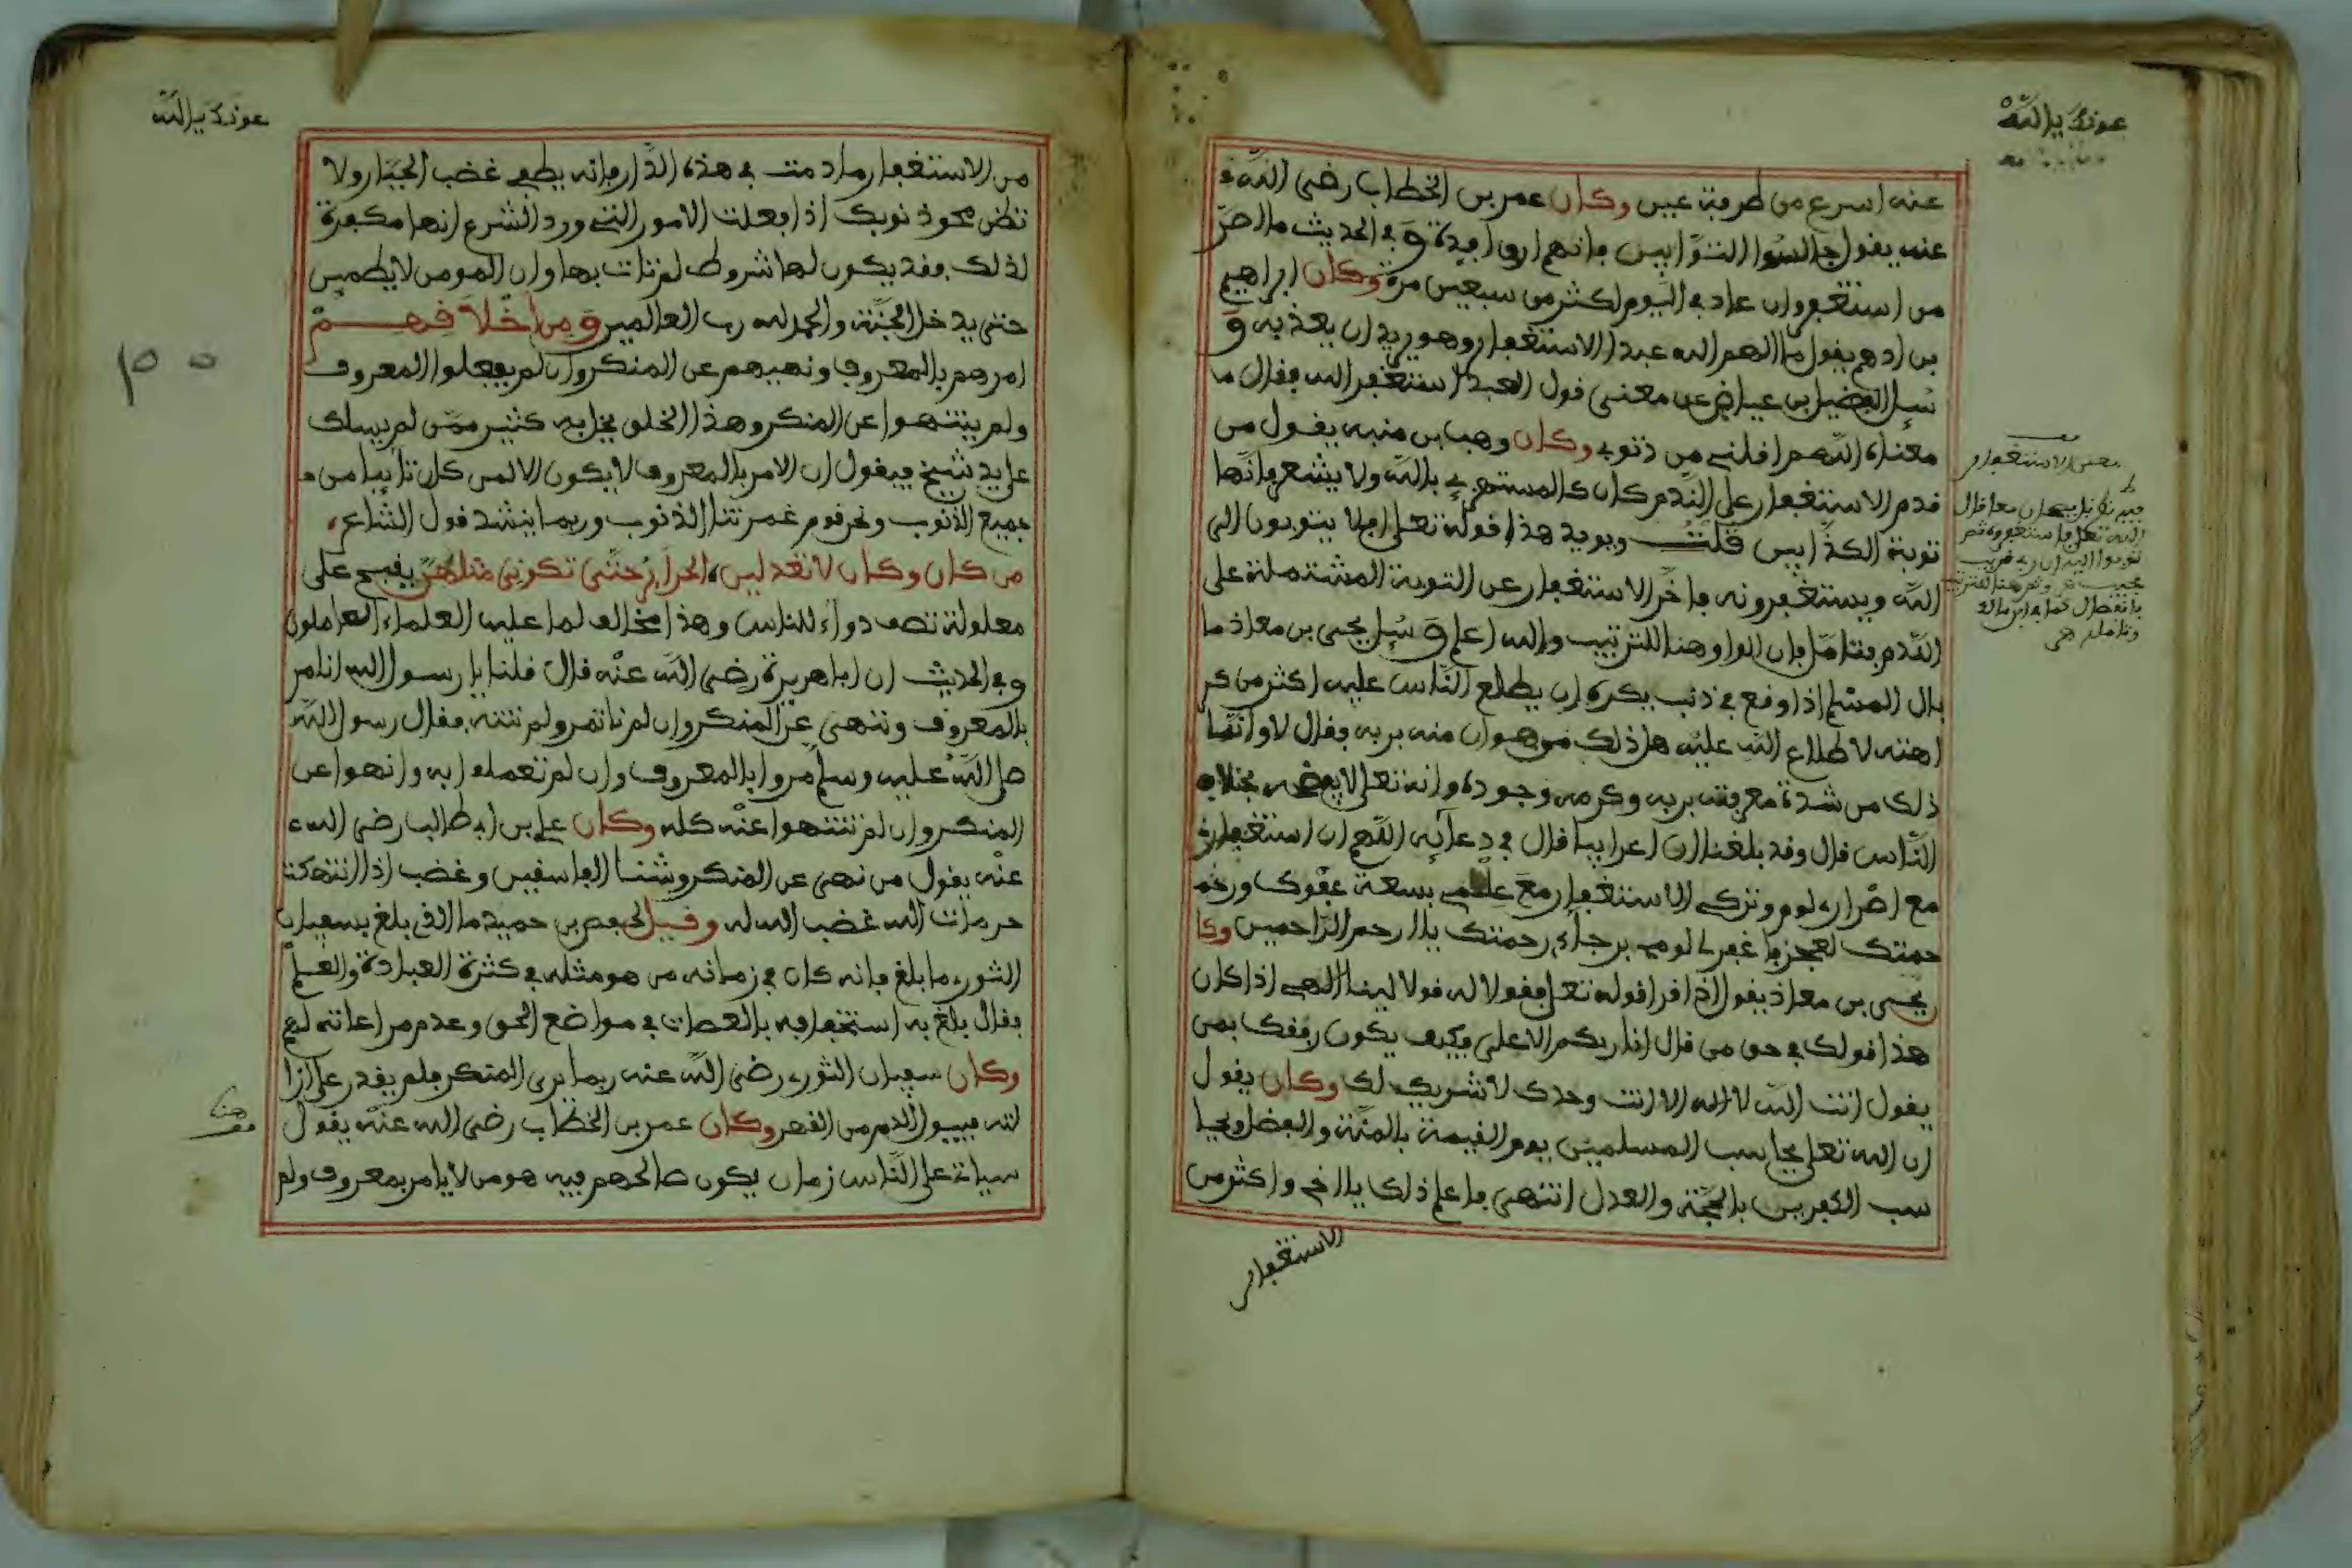 عونك يا الله
عنه اسرع من طرفة عين وكان عمر بن الخطاب رضى الله
عنه يقول جالسوا التوابين فانهم ارق افيدة وفي الحديث ما اصر
من استغفر وان عاد في اليوم اكثر من سبعين مرة وكان ابراهيم
بن ادهم يقول ما الهم الله عبدا الاستغفار وهو يريد ان يعذبه و
سيل الفضيل بن عياض عن معنى قول العبد استغفر الله فقال ما
معناه اللهم اقلني من ذنوبي وكان وهب بن منبه يقول من
قدم الاستغفار على الندم كان كالمستهزي بالله ولا يشعر فانها
توبة الكذابين قلت ويويد هذا قوله تعلى افلا يتوبون الى
الله ويستغفرونه فاخر الاستغفار عن التوبة المشتملة على
الندم فتامل فان الواو هنا للترتيب والله اعلم وسيل يحيى بن معاذ ما
بال المسلم اذا وقع في ذنب يكره ان يطلع الناس عليه اكثر من كر
اهته لاطلاع الله عليه هل ذلك من هوان منه بربه فقال لا وانما
ذلك من شدة معرفته بربه وكرمه وجوده وانه تعلى لا يفضحه بخلاف
الناس قال وقد بلغنا ان اعرابيا قال في دعايه اللهم ان استغفاري
مع اصراري لوم وتركي الاستغفار مع علمي بسعة عفوك ور
حمتك لعجز فاغفر لي لومي برجاء رحمتك يا ارحم الراحمين وكا
يحيى بن معاذ يقول اذا قرا قوله تعلى فقولا له قولا لينا الهي اذا كان
هذا قولك في حق من قال انا ربكم الاعلى فكيف يكون رفقك بمن
يقول انت الله لا اله الا انت وحدك لا شريك لك وكان يقول
ان الله تعلى يحاسب المسلمين يوم القيمة بالمنة والفضل ويحا
سب الكفرين بالحجة والعدل انتهى فاعلم ذلك يا اخي واكثر من
الاستغفار
معنى الاستغفار
عونك يا الله
من الاستغفار ما دمت في هذه الدار فانه يطفي غضب الجبار ولا
تظن محو ذنوبك اذا فعلت الامور التي ورد الشرع انها مكفرة
لذلك فقد يكون لها شروط لم تات بها وان المومن لا يطمين
حتى يدخل الجنة والحمد لله رب العالمين ومن اخلاقهم
امرهم بالمعروف ونهيهم عن المنكر وان لم يفعلوا المعروف
ولم ينتهوا عن المنكر وهذا الخلق يخل به كثير ممن لم يسلك
على يد شيخ فيقول ان الامر بالمعروف لا يكون الا لمن كان تايبا من
جميع الذنوب ونحن قوم غمرتنا الذنوب وربما ينشد قول الشاعر
من كان وكان لا تعدلين الحراير حتى تكوني مثلهن يقبح على
معلولة تصف دواء للناس وهذا مخالف لما عليه العلماء العاملون
وفي الحديث ان ابا هريرة رضى الله عنه قال قلنا يا رسول الله انامر
بالمعروف وننهى عن المنكر وان لم ناتمر ولم ننته فقال رسول الله
صلى الله عليه وسلم مروا بالمعروف وان لم تعملوا به وانهوا عن
المنكر وان لم تنتهوا عنه كله وكان علي بن ابي طالب رضى الله
عنه يقول من نهى عن المنكر وشنا الفاسقين وغضب اذا انتهكت
حرمات الله غضب الله له وقيل لحفص بن حميد ما الذي بلغ بسفيان
الثوري ما بلغ فانه كان في زمانه من هو مثله في كثرة العبادة والعلم
فقال بلغ به استخفافه بالعصات في مواضع الحق وعدم مراعاته لهم
وكان سفيان الثوري رضى الله عنه ربما يرى المنكر فلم يقدر على ازا
لته فيبول الدم من القهر وكان عمر بن الخطاب رضى الله عنه يقول
سياتي على الناس زمان يكون صالحهم فيه هو من لا يامر بمعروف ولم